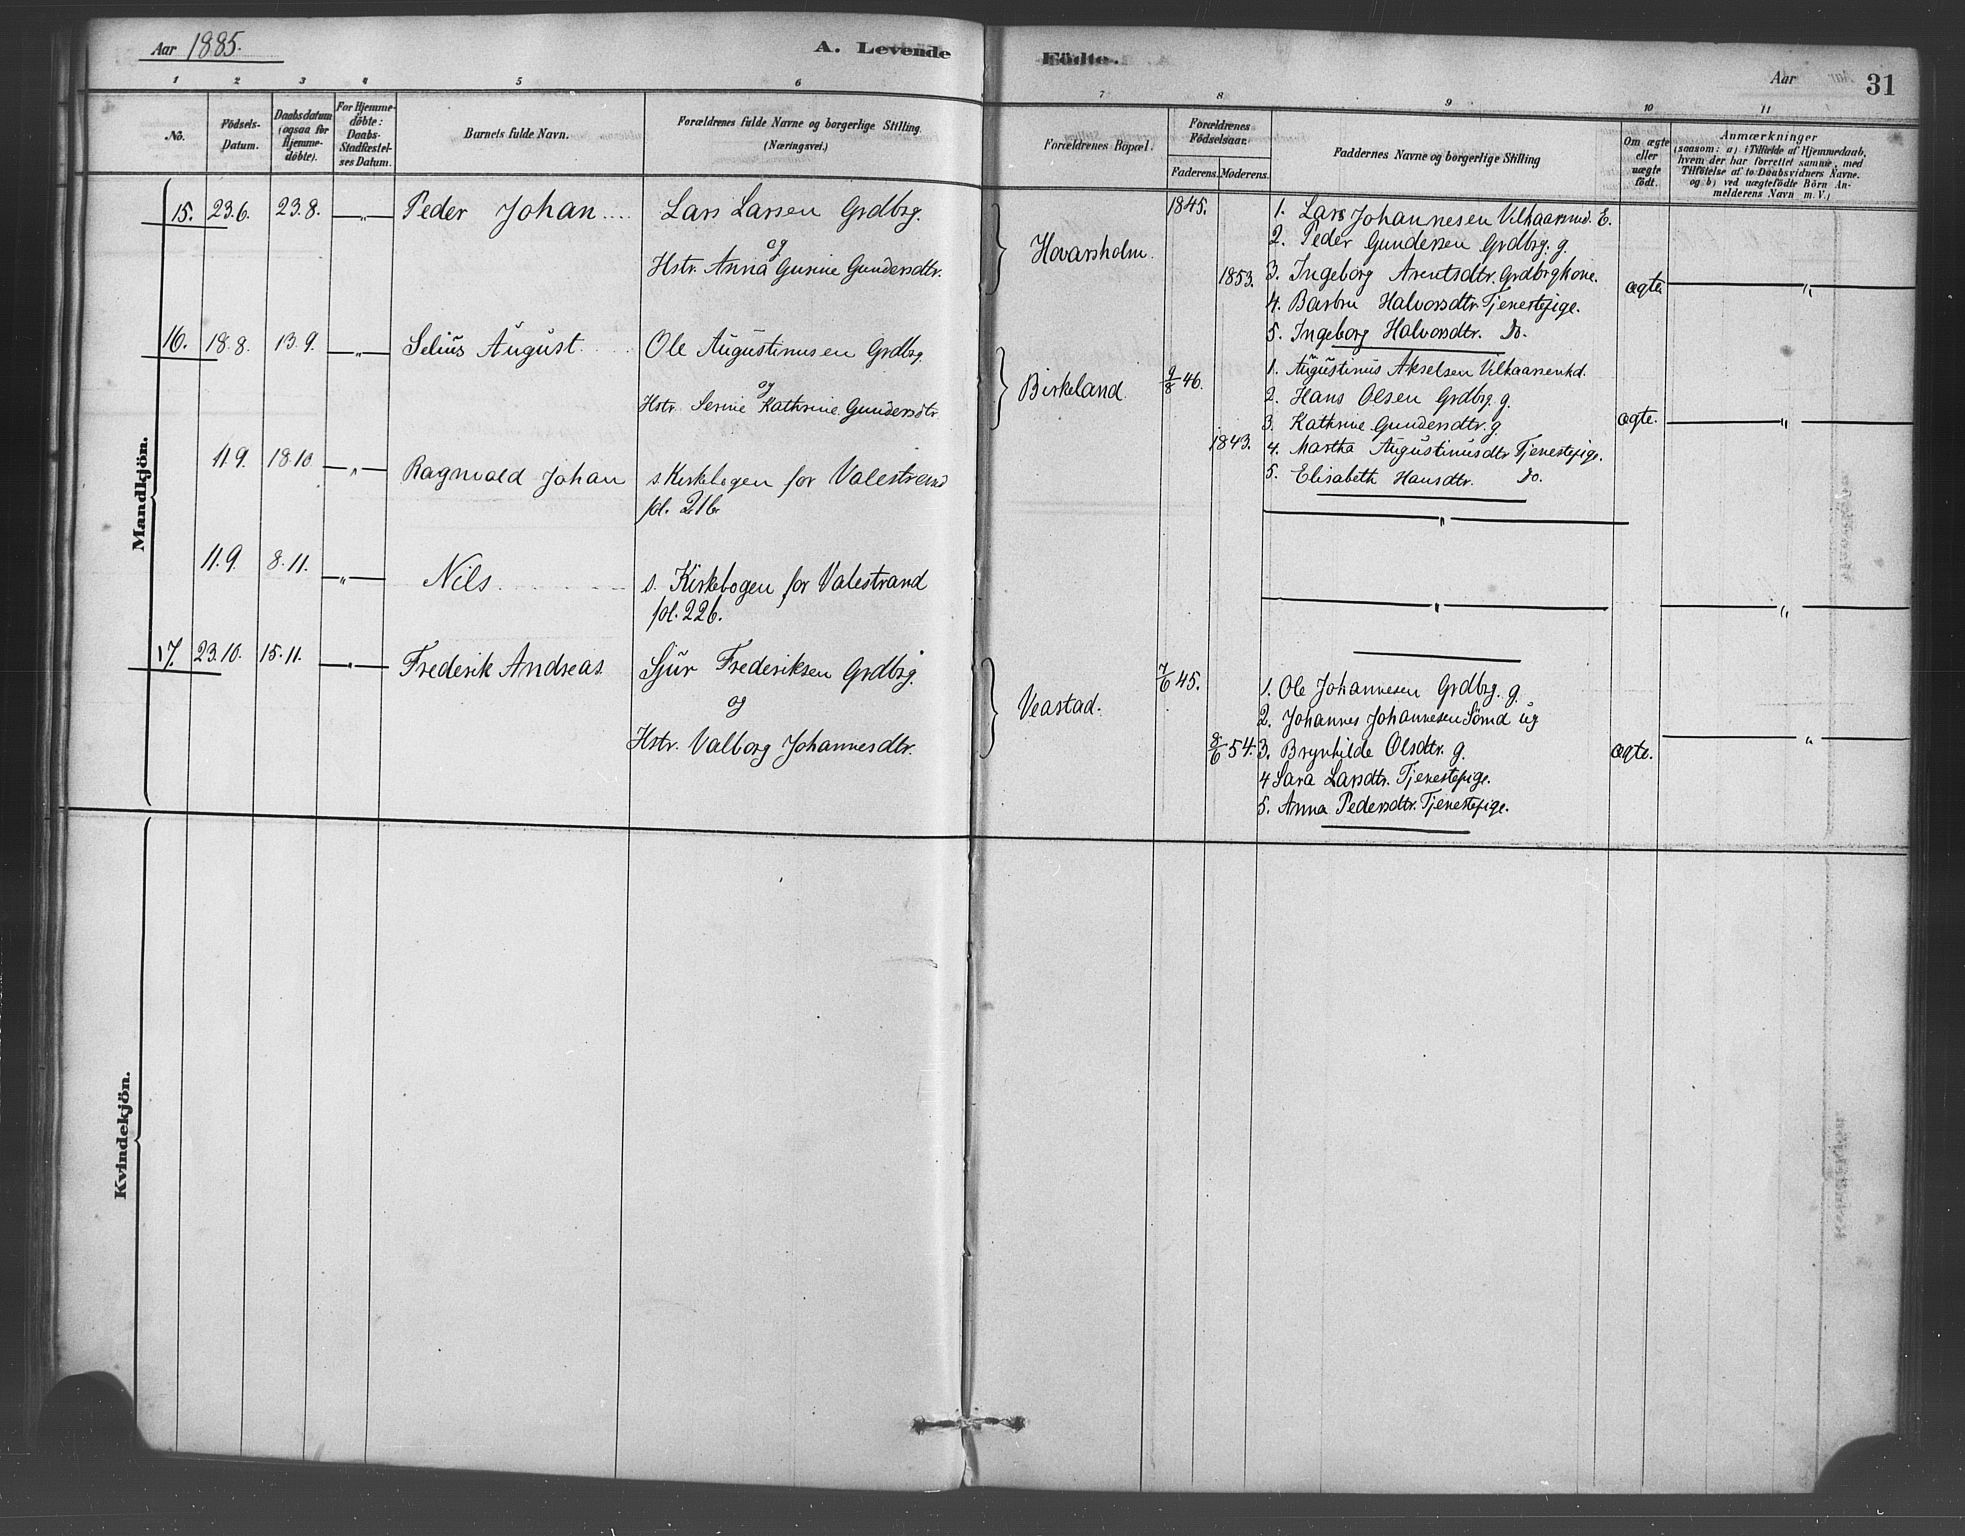 Aar 1885.
A. Levende
Födte.
Aar
31
1 2 3 4 5 6 7 8 9 10 11
No.
Födsels-
Datum.
Daabsdatum
(ogsaa for
Hjemme-
döbte).
For Hjemme-
döbte:
Daabs-
Stadfæstel-
ses Datum.
Barnets fulde Navn.
Forældrenes fulde Navne og borgerlige Stilling.
(Næringsvei.)
Forældrenes Bopæl.
Forældrenes
Födselsaar.
Faderens. Moderens.
Faddernes Navne og borgerlige Stilling
Om ægte
eller
uægte
födt.
Anmærkninger
(saasom: a) i Tilfælde af Hjemmedaab,
hvem der har forrettet samme, med
Tilföielse af to Daabsvidners Navne.
og b) ved uægtefödte Börn An-
melderens Navn m. V.)
Mandkjön.
15. 23.6. 23.8. — „ — Peder Johan .... Lars Larsen Grdbrg.
og
Hstr. Anna Gurine Gundersdtr.
Hovarsholm.
1845.
1853.
1. Lars Johannesen Vilkaarsmd. E.
2. Peder Gundersen Grdbrg. g.
3. Ingeborg Arentsdtr. Grdbrgkone.
4. Barbru Halvorsdtr. Tjenestepige.
5. Ingeborg Halvorsdtr. Do.
ægte.
— „ —
16. 18.8. 13.9. — „ — Selius August .... Ole Augustinusen Grdbrg.
og
Hstr. Serine Kathrine Gundersdtr.
Birkeland.
9/8 46.
1843.
1. Augustinus Akselsen
2. Hans Olsen Grdbrg. g.
3. Kathrine Gundersdtr. g.
4. Martha Augustinusdtr. Tjenestepige.
5. Elisabeth Hansdtr. Do.
ægte.
— „ —
11.9. 18.10. — „ — Ragnvald Johan s. Kirkebogen for Valestrand
fol. 21b.
— „ —
11.9. 8.11. — „ — Nils .... s. Kirkebogen for Valestrand
fol. 22b.
— „ — — „ —
17. 23.10. 15.11. — „ — Frederik Andreas. Sjur Frederiksen Grdbrg.
og
Hstr. Valborg Johannesdtr.
Veastad.
7/6 45.
8/6 54.
1. Ole Johannesen Grdbrg. g.
2. Johannes Johannesen Sömd ug
3. Brynhilde Olsdtr. g.
4 Sara Larsdtr. Tjenestepige.
5. Anna Pedersdtr. Tjenestepige.
ægte.
— „ —
Kvindekjön.